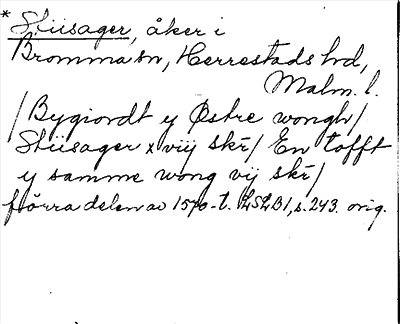 * Stiisager, åker i
Bromma sn, Herrestads hd,
Malm. l.
/Bygiordt y Østre wongh/
Stiisager x viij skr/ En tofft
y samme wong vij skr/
förra delen av 1570-t. LSLB1, s. 243. orig.